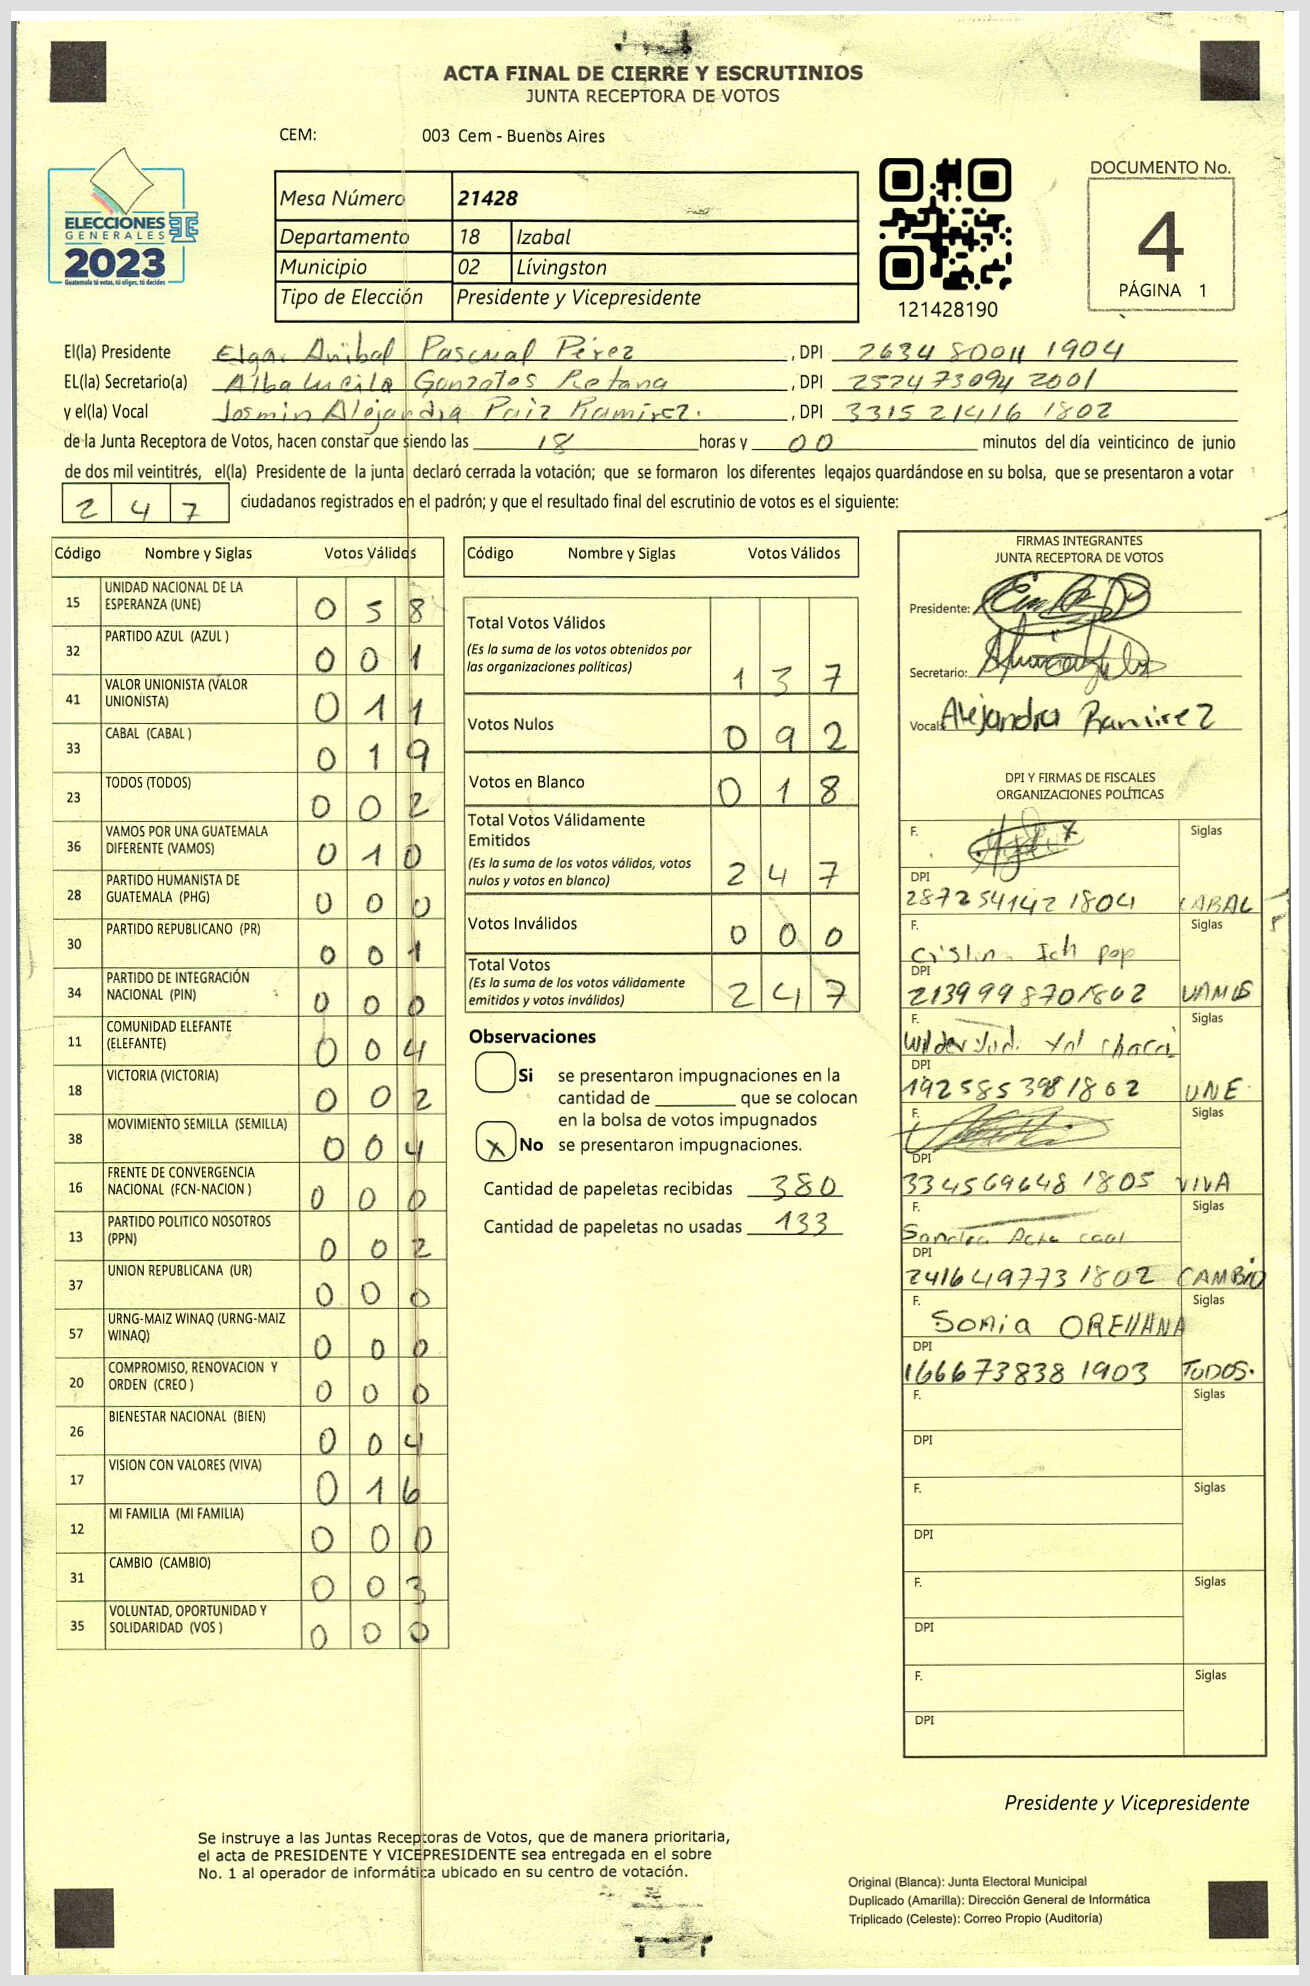 ACTA FINAL DE CIERRE Y ESCRUTINIOS
JUNTA RECEPTORA DE VOTOS
CEM: 003 Cem - Buenos Aires
ELECCIONES
GENERALES
2023
Guatemala tú votas, tú eliges, tú decides
Mesa Número 21428
Departamento 18 Izabal
Municipio 02 Lívingston
Tipo de Elección Presidente y Vicepresidente
121428190
DOCUMENTO No.
4
PÁGINA 1
El(la) Presidente Elgar Anibal Pascual Pérez, DPI 2634 80011 1904
EL(la) Secretario(a) Alba Lucila Gonzales Retana, DPI 252473094 2001
y el(la) Vocal Josmin Alejandra Paiz Ramirez., DPI 3315 21416 1802
de la Junta Receptora de Votos, hacen constar que siendo las 18 horas y 00 minutos del día veinticinco de junio
de dos mil veintitrés, el(la) Presidente de la junta declaró cerrada la votación; que se formaron los diferentes legajos guardándose en su bolsa, que se presentaron a votar
247 ciudadanos registrados en el padrón; y que el resultado final del escrutinio de votos es el siguiente:
Código Nombre y Siglas Votos Válidos
15 UNIDAD NACIONAL DE LA ESPERANZA (UNE) 058
32 PARTIDO AZUL (AZUL ) 001
41 VALOR UNIONISTA (VALOR UNIONISTA) 011
33 CABAL (CABAL ) 019
23 TODOS (TODOS) 002
36 VAMOS POR UNA GUATEMALA DIFERENTE (VAMOS) 010
28 PARTIDO HUMANISTA DE GUATEMALA (PHG) 000
30 PARTIDO REPUBLICANO (PR) 001
34 PARTIDO DE INTEGRACIÓN NACIONAL (PIN) 000
11 COMUNIDAD ELEFANTE (ELEFANTE) 004
18 VICTORIA (VICTORIA) 002
38 MOVIMIENTO SEMILLA (SEMILLA) 004
16 FRENTE DE CONVERGENCIA NACIONAL (FCN-NACION ) 000
13 PARTIDO POLITICO NOSOTROS (PPN) 002
37 UNION REPUBLICANA (UR) 000
57 URNG-MAIZ WINAQ (URNG-MAIZ WINAQ) 000
20 COMPROMISO, RENOVACION Y ORDEN (CREO ) 000
26 BIENESTAR NACIONAL (BIEN) 004
17 VISION CON VALORES (VIVA) 016
12 MI FAMILIA (MI FAMILIA) 000
31 CAMBIO (CAMBIO) 003
35 VOLUNTAD, OPORTUNIDAD Y SOLIDARIDAD (VOS ) 000
Código Nombre y Siglas Votos Válidos
Total Votos Válidos
(Es la suma de los votos obtenidos por
las organizaciones políticas) 137
Votos Nulos 092
Votos en Blanco 018
Total Votos Válidamente
Emitidos
(Es la suma de los votos válidos, votos
nulos y votos en blanco) 247
Votos Inválidos 000
Total Votos
(Es la suma de los votos válidamente
emitidos y votos inválidos) 247
Observaciones
Si se presentaron impugnaciones en la
cantidad de ________ que se colocan
en la bolsa de votos impugnados
X No se presentaron impugnaciones.
Cantidad de papeletas recibidas 380
Cantidad de papeletas no usadas 133
FIRMAS INTEGRANTES
JUNTA RECEPTORA DE VOTOS
Presidente:
Secretario:
Vocal: Alejandra Ramirez
DPI Y FIRMAS DE FISCALES
ORGANIZACIONES POLÍTICAS
F. Siglas
DPI
28725414 2 1804 CABAL
F. Siglas
Cristina Ich Pop
DPI
213999870 1802 VAMOS
F. Siglas
Wilder
DPI
192585398 1802 UNE
F. Siglas
DPI
334569648 1805 VIVA
F. Siglas
Sandra
DPI
241649773 1802 CAMBIO
F. Siglas
Sonia ORELLANA
DPI
166673838 1903 TODOS.
F. Siglas
DPI
F. Siglas
DPI
F. Siglas
DPI
F. Siglas
DPI
Presidente y Vicepresidente
Se instruye a las Juntas Receptoras de Votos, que de manera prioritaria,
el acta de PRESIDENTE Y VICEPRESIDENTE sea entregada en el sobre
No. 1 al operador de informática ubicado en su centro de votación.
Original (Blanca): Junta Electoral Municipal
Duplicado (Amarilla): Dirección General de Informática
Triplicado (Celeste): Correo Propio (Auditoría)